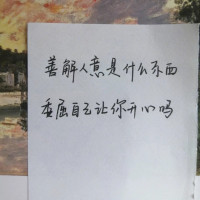 善解人意是什么东西
委屈自己让你开心吗